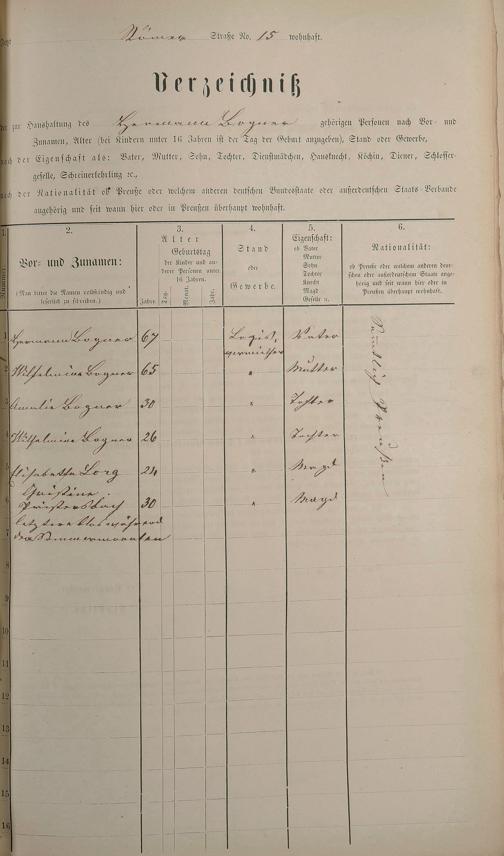 Römer Straße No. 15 wohnhaft.
Verzeichniß
der zur Haushaltung des Hermann Bogner gehörigen Personen nach Vor- und
Zunamen, Alter (bei Kindern unter 16 Jahren ist der Tag der Geburt anzugeben), Stand oder Gewerbe,
nach der Eigenschaft als: Vater, Mutter, Sohn, Tochter, Dienstmädchen, Hausknecht, Köchin, Diener, Schlosser-
geselle, Schreinerlehrling ꝛc.,
nach der Nationalität ob Preuße oder welchem anderen deutschen Bundesstaate oder außerdeutschen Staats-Verbande
angehörig und seit wann hier oder in Preußen überhaupt wohnhaft.
1. 2. 3. 4. 5. 6.
Nummer.
Vor- und Zunamen:
(Man bittet die Namen vollständig und
leserlich zu schreiben.)
Alter
Geburtstag
der Kinder und an-
derer Personen unter
16 Jahren.
Jahre. Tag. Monat. Jahr.
Stand
oder
Gewerbe.
Eigenschaft:
ob Vater
Mutter
Sohn
Tochter
Knecht
Magd
Geselle ꝛc.
Nationalität:
ob Preuße oder welchem anderen deut-
schen oder außerdeutschen Staate ange-
hörig und seit wann hier oder in
Preußen überhaupt wohnhaft.
1 Hermann Bogner 67 Logis- Vater
vermiether
2 Wilhelmine Bogner 65 " Mutter
3 Amalie Bogner 30 " Tochter
4 Wilhelmine Bogner 26 " Tochter
5 Elisabetha Lorg 24 Magd
6 Christine
30 " Magd
letztere blos während
7 den Sommermonaten
Sämtlich Preußen
8
9
10
11
12
13
14
15
16